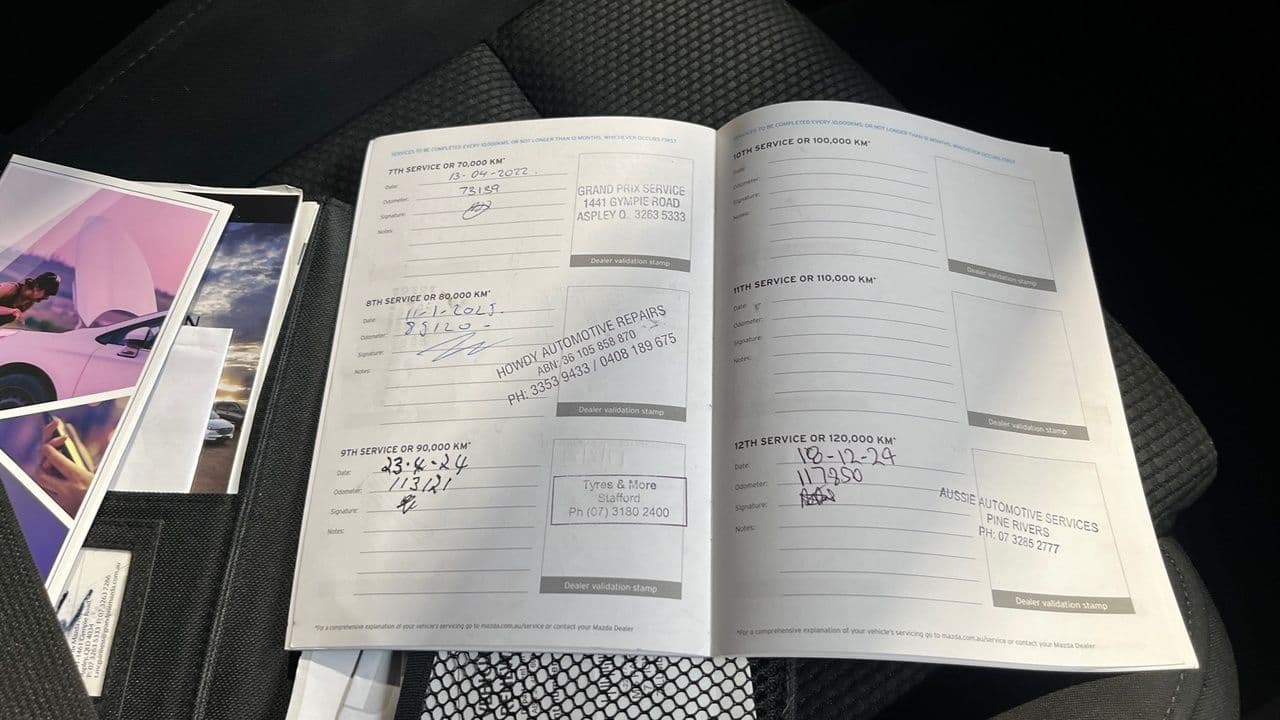 SERVICES TO BE COMPLETED EVERY 10,000KMS, OR NOT LONGER THAN 12 MONTHS, WHICHEVER OCCURS FIRST
7TH SERVICE OR 70,000 KM*
Date: 13-04-2022.
Odometer: 73139
Signature:
Notes:
GRAND PRIX SERVICE
1441 GYMPIE ROAD
ASPLEY Q. 3263 5333
Dealer validation stamp
8TH SERVICE OR 80,000 KM*
Date: 11-1-2023.
Odometer: 85120 -
Signature:
Notes:
HOWDY AUTOMOTIVE REPAIRS
ABN: 36 105 858 870
PH: 3353 9433 / 0408 189 675
Dealer validation stamp
9TH SERVICE OR 90,000 KM*
Date: 23-4-24
Odometer: 113121
Signature:
Notes:
Tyres & More
Stafford
Ph (07) 3180 2400
Dealer validation stamp
*For a comprehensive explanation of your vehicle's servicing go to mazda.com.au/service or contact your Mazda Dealer
SERVICES TO BE COMPLETED EVERY 10,000KMS, OR NOT LONGER THAN 12 MONTHS, WHICHEVER OCCURS FIRST
10TH SERVICE OR 100,000 KM*
Date:
Odometer:
Signature:
Notes:
Dealer validation stamp
11TH SERVICE OR 110,000 KM*
Date:
Odometer:
Signature:
Notes:
Dealer validation stamp
12TH SERVICE OR 120,000 KM*
Date: 18-12-24
Odometer: 117850
Signature:
Notes:
AUSSIE AUTOMOTIVE SERVICES
PINE RIVERS
PH: 07 3285 2777
Dealer validation stamp
*For a comprehensive explanation of your vehicle's servicing go to mazda.com.au/service or contact your Mazda Dealer